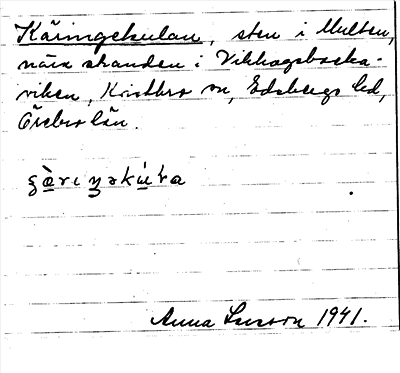 Käringekulan, sten i Multen,
nära stranden i Vikhagsbacka-
viken, Knista sn, Edsbergs hd,
Örebro län.
Anna Larsson 1941.